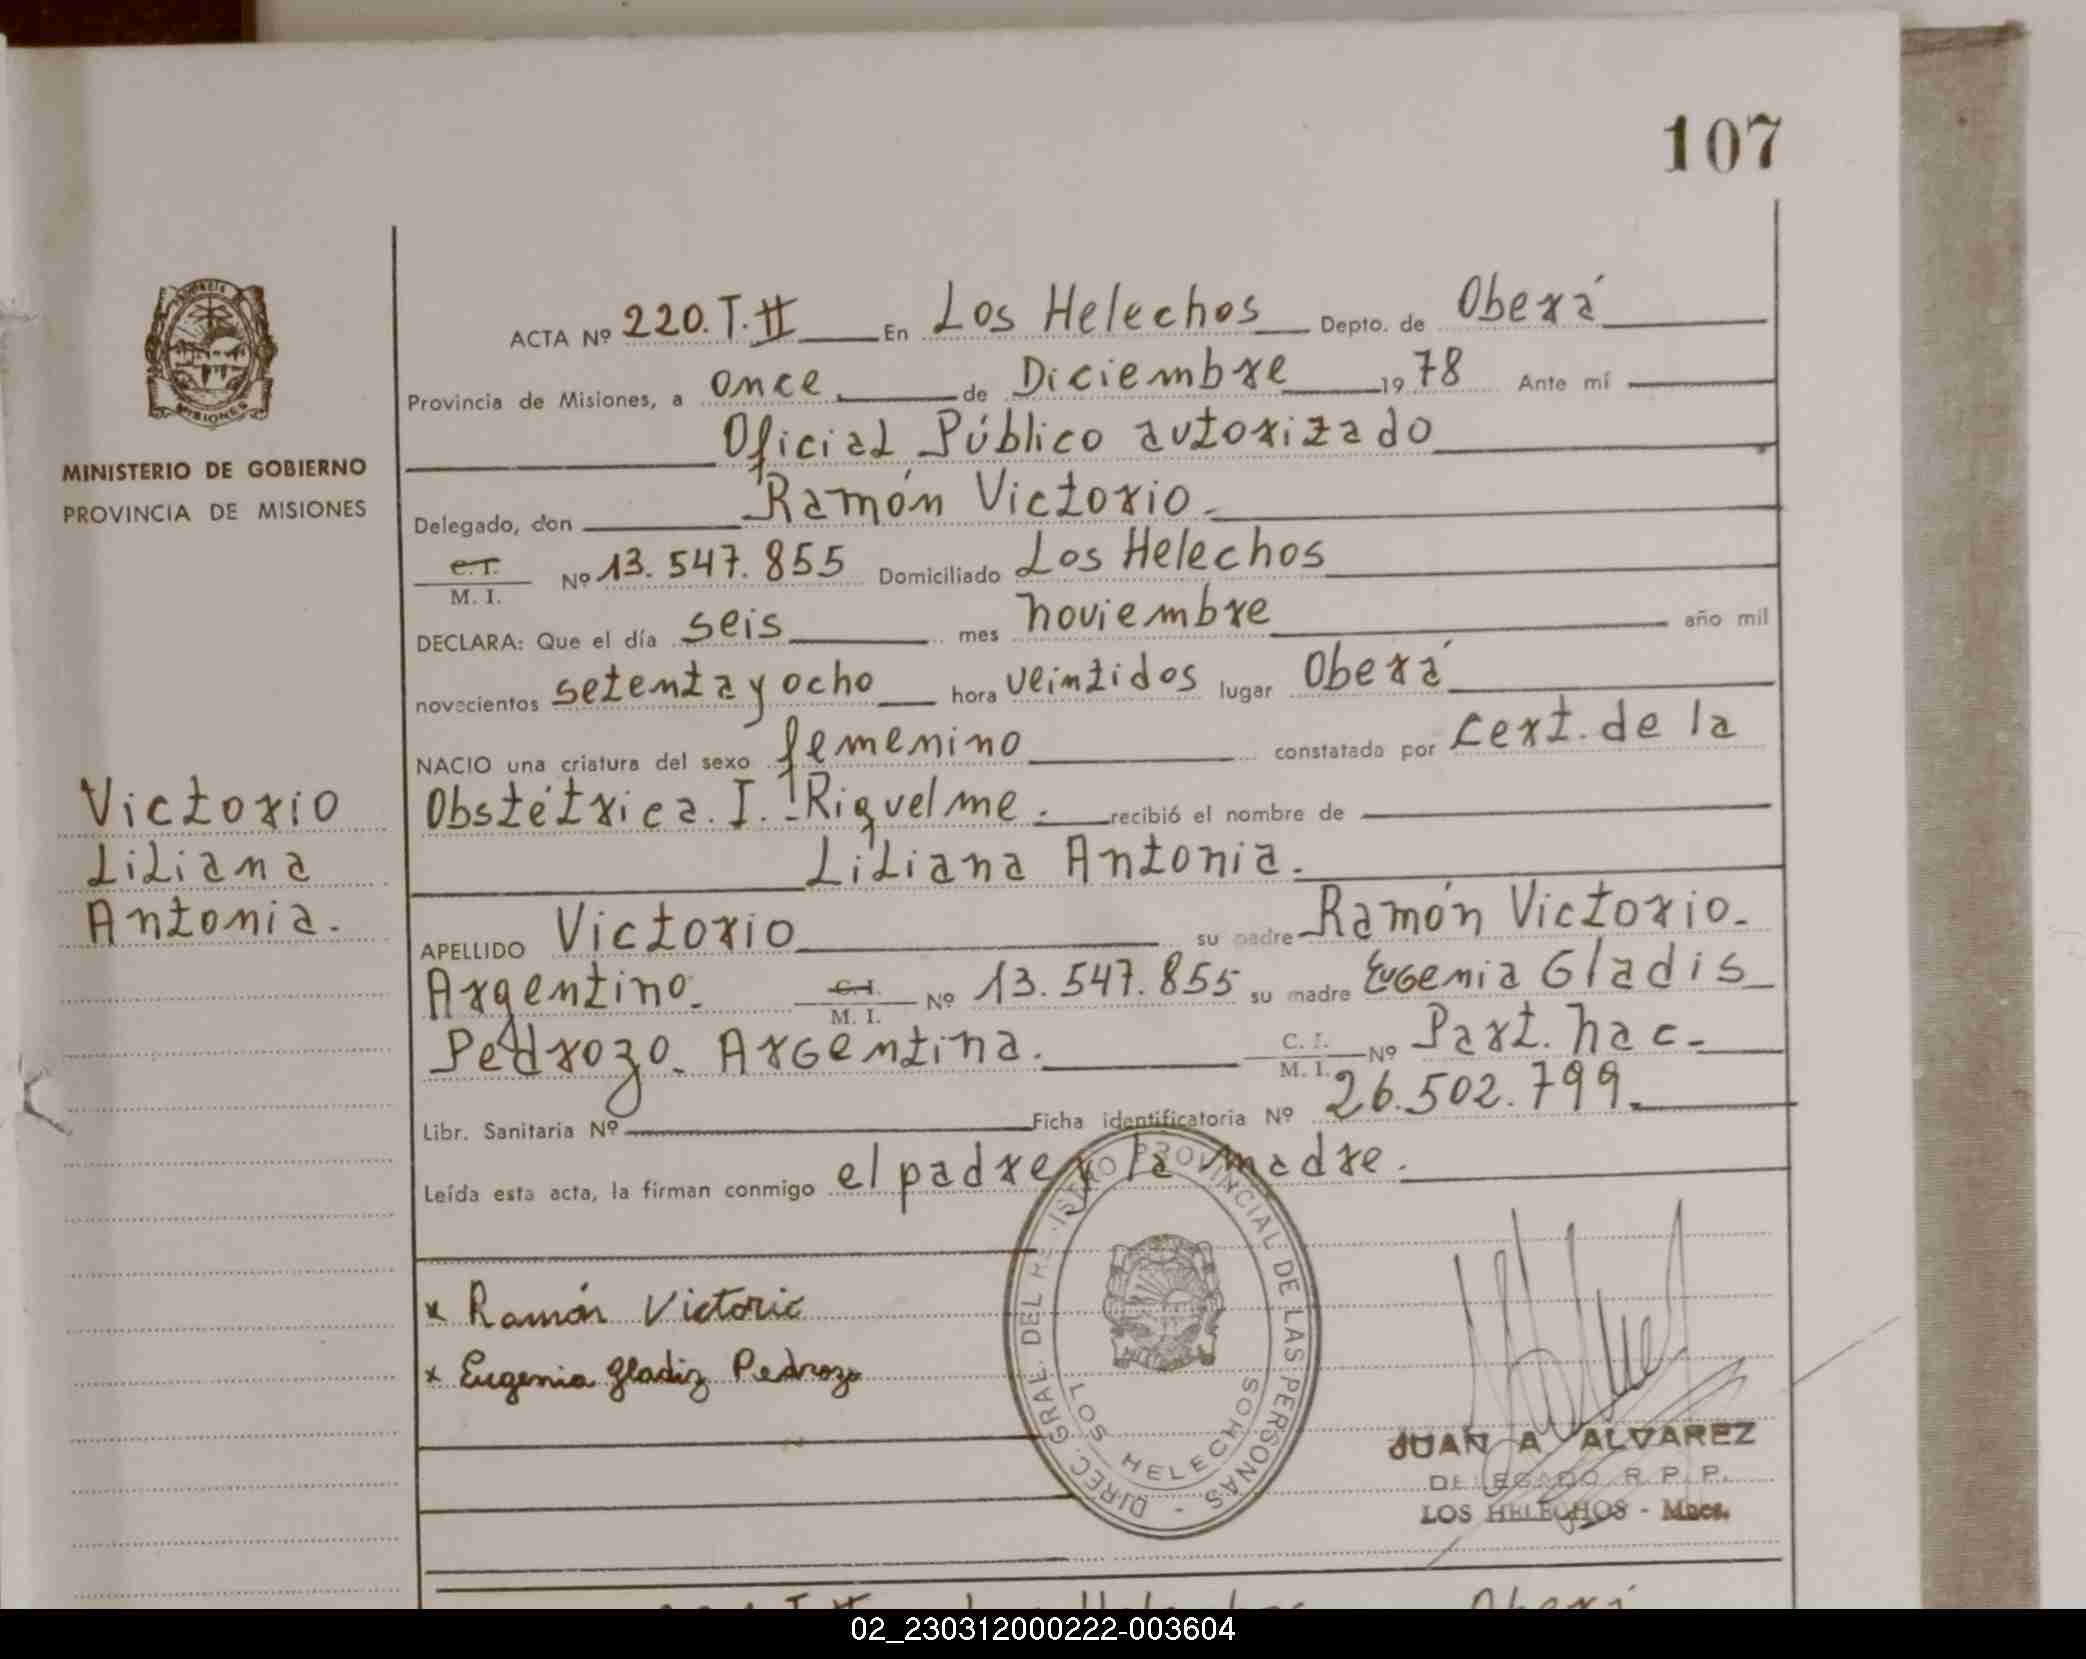 107
ACTA Nº 220. T. II En Los Helechos Depto. de Oberá
Provincia de Misiones, a once de Diciembre 1978 Ante mí
Oficial Público autorizado
Delegado, don Ramón Victorio.
C.I. M. I. Nº 13.547.855 Domiciliado Los Helechos
DECLARA: Que el día seis mes noviembre año mil
novecientos setenta y ocho hora veintidos lugar Oberá
NACIO una criatura del sexo femenino constatada por cert. de la
Obstétrica. I. Riquelme. recibió el nombre de
Liliana Antonia.
APELLIDO Victorio su padre Ramón Victorio.
Argentino. C.I. M. I. Nº 13.547.855 su madre Eugenia Gladis
Pedrozo. Argentina. C. I. M. I. Nº Part. nac.
Libr. Sanitaria Nº Ficha identificatoria Nº 26.502.799.
Leída esta acta, la firman conmigo el padre y la madre.
x Ramón Victorio
x Eugenia Gladiz Pedrozo
PROVINCIA DE MISIONES
MINISTERIO DE GOBIERNO
PROVINCIA DE MISIONES
Victorio
Liliana
Antonia.
DIREC. GRAL. DEL REGISTRO PROVINCIAL DE LAS PERSONAS -
LOS HELECHOS
JUAN A ALVAREZ
DELEGADO R. P. P.
LOS HELECHOS - Mnes.
02_230312000222-003604